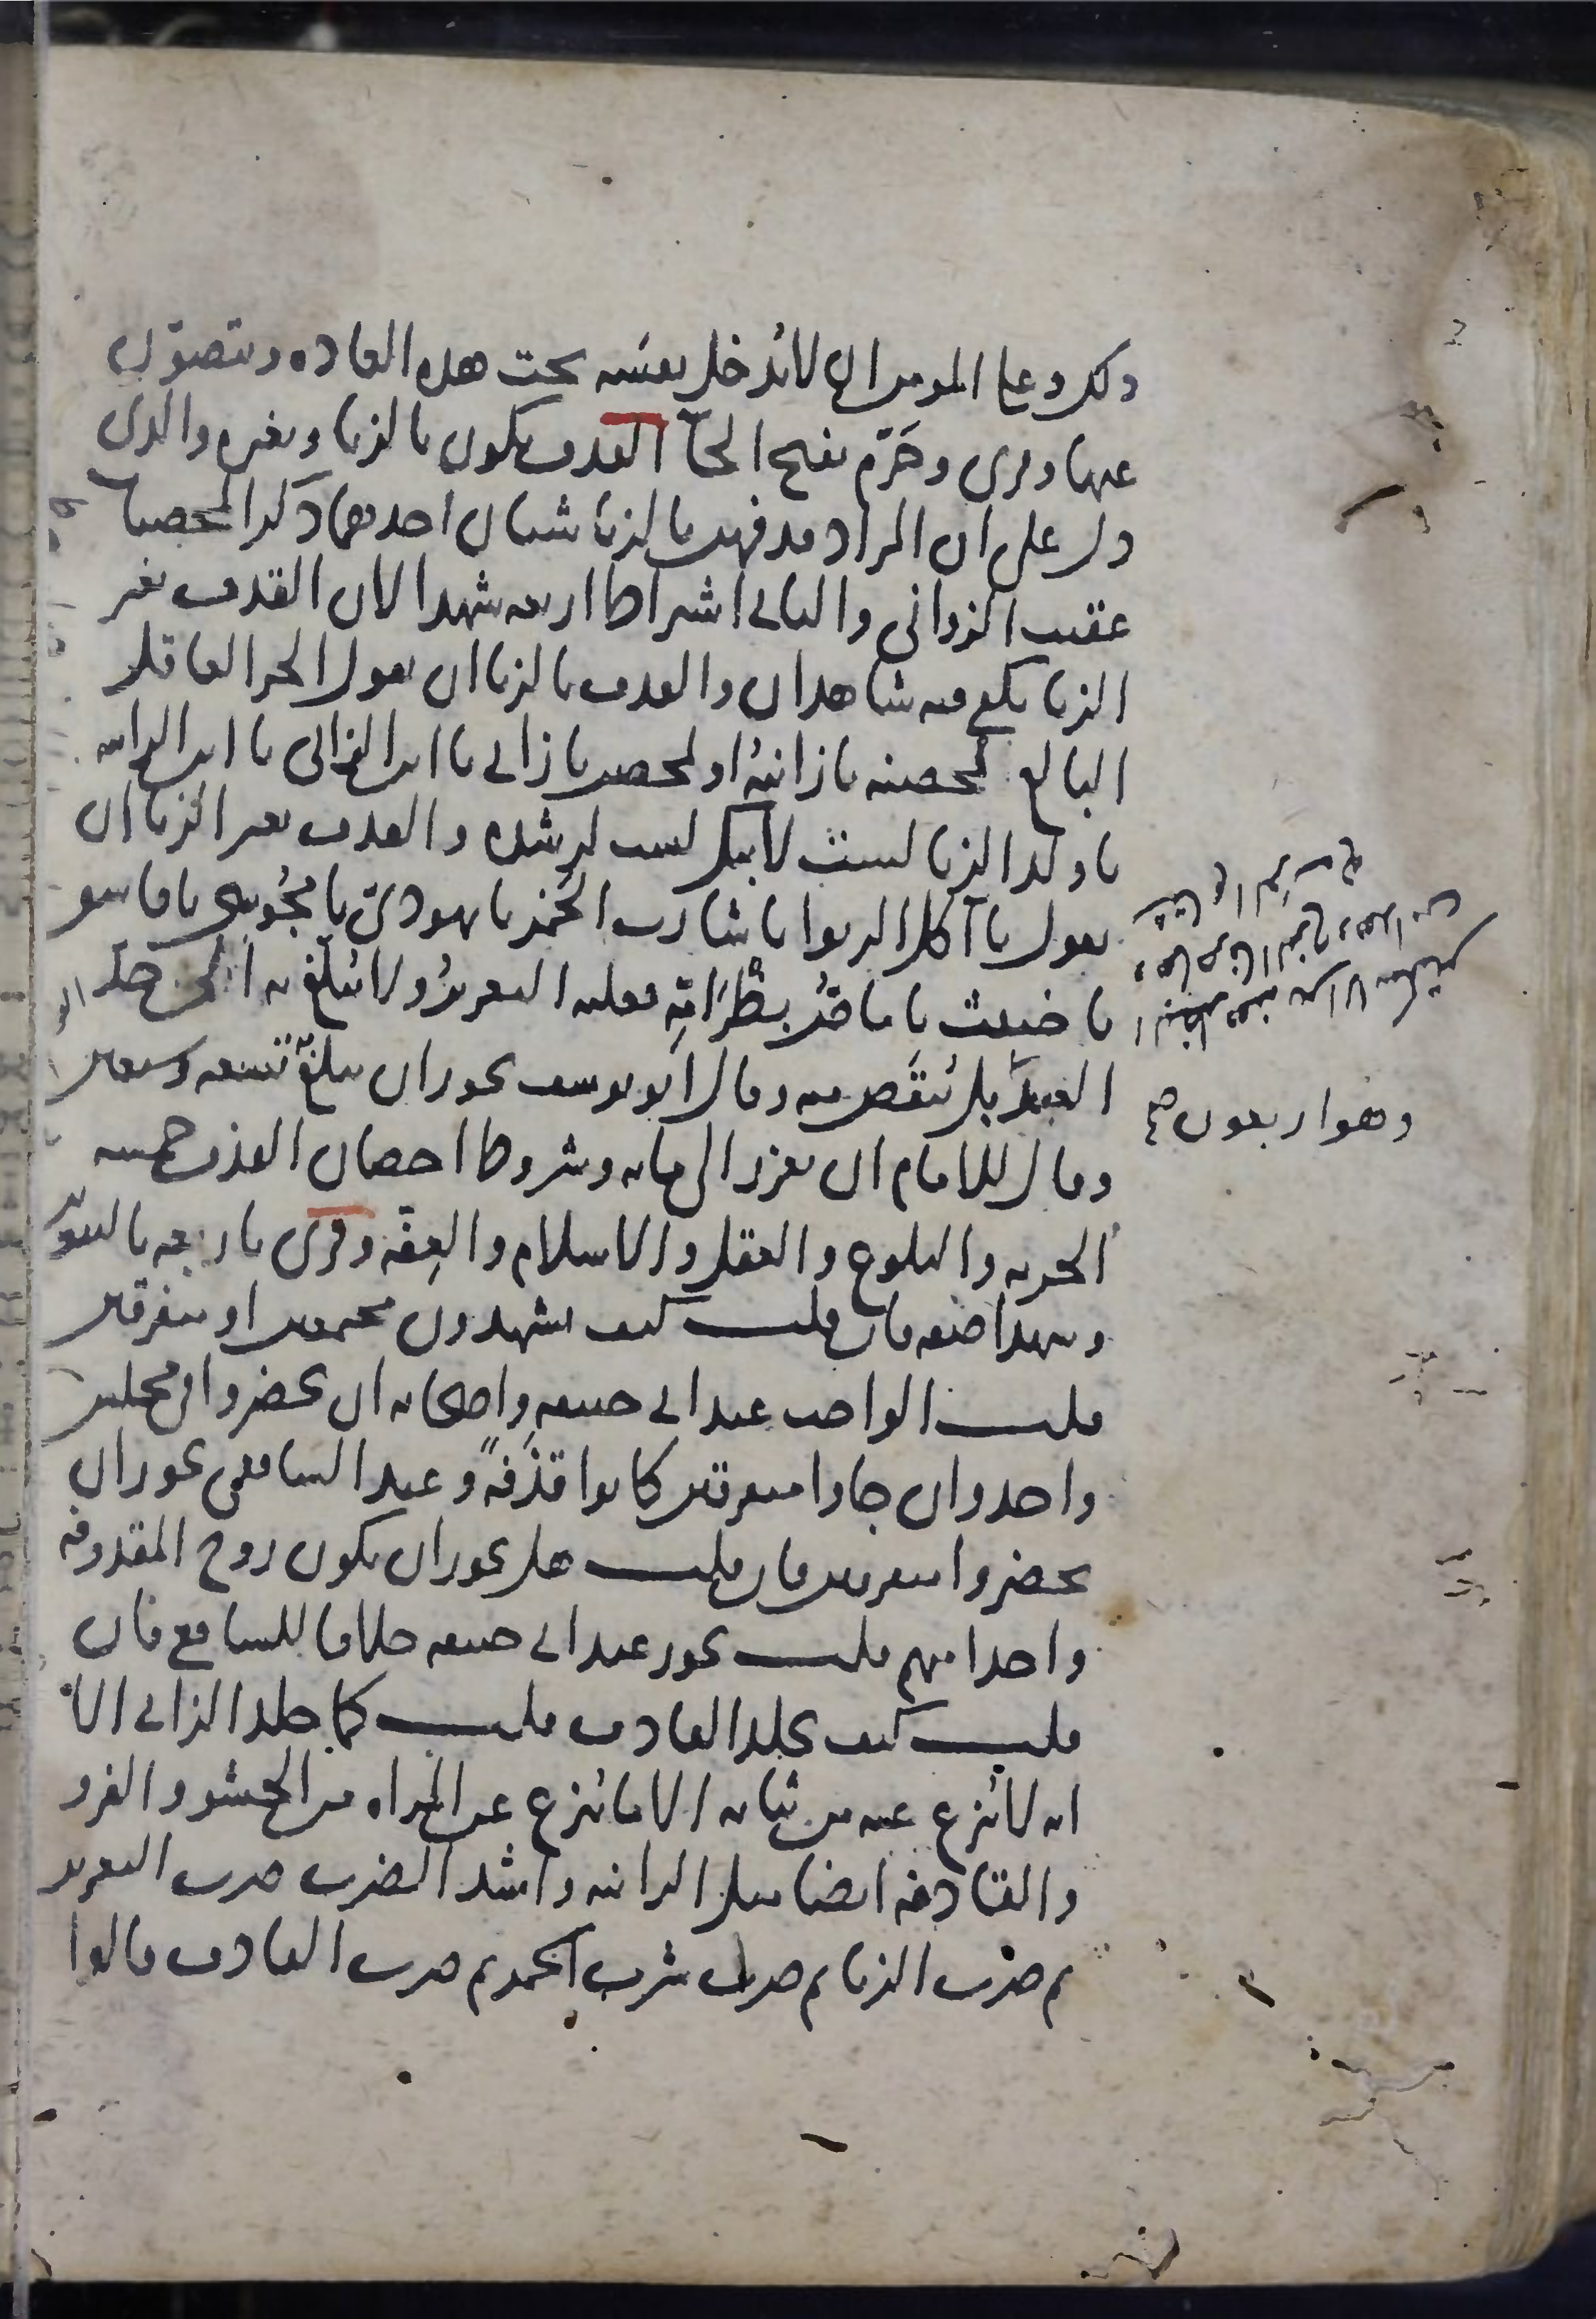 ذلك وعلى المومن ان لا يُدخل نفسَه تحت هذه العاده ويتصوّن
عنها وقرى وحَرّم بفتح الحآ القذف يكون بالزنا وبغيره والذى
دل على ان المراد قذفهن بالزنا شيئان احدهما ذكر المحصنات
عقيب الزوانى والثانى اشتراط اربعه شهدا لان القذف بغير
الزنا يكفى فيه شاهدان والقذف بالزنا ان يقول الحر العاقل
البالغ لمحصنه يا زانيهُ او لمحصن يا زانى يا ابن الزانى يا ابن الزانيه
يا ولد الزنا لستَ لابيك لست لرشده والقذف بغير الزنا ان
يقول يا آكل الربوا يا شارب الخمر يا يهودىّ يا مجُوسى يا فاسق
يا خبيث يا ماصّ بظْرَ امّهِ فعليه التعزيرُ ولا يُبلغ به ادنى حدّ
العبيد بل يُنقَص منه وقال ابو يوسف يجوز ان يبلغ تسعه وسبعين
وقال للامام ان يعزر الى مايه وشروط احصان القذف خمسه
الحريه والبلوغ والعقل والاسلام والعِفّه وقرى باربعهٍ بالتنوين
وشهدا صفه فان قلت كيف يشهدون مجتمعين او متفرقين
قلت الواجب عند ابى حنيفه واصحابه ان يحضروا فى مجلس
واحد وان جاوا متفرقين كانوا قذَفهً وعند الشافعى يجوز ان
يحضروا متفرقين فان قلت هل يجوز ان يكون زوج المقذوفه
واحدا منهم قلت يجوز عند ابى حنيفه خلافا للشافعى فان
قلت كيف يجلد القاذف قلت كما جلد الزانى الا
انه لا يُنزع عنه من ثيابه الا ما يُنزع عن المراه من الحشو والفرو
والقاذفه ايضا مثل الزانيه واشد الضرب ضرب التعزير
ثم ضرب الزنا ثم ضرب شرب الخمر ثم ضرب القاذف قالوا
وهو اربعون صح